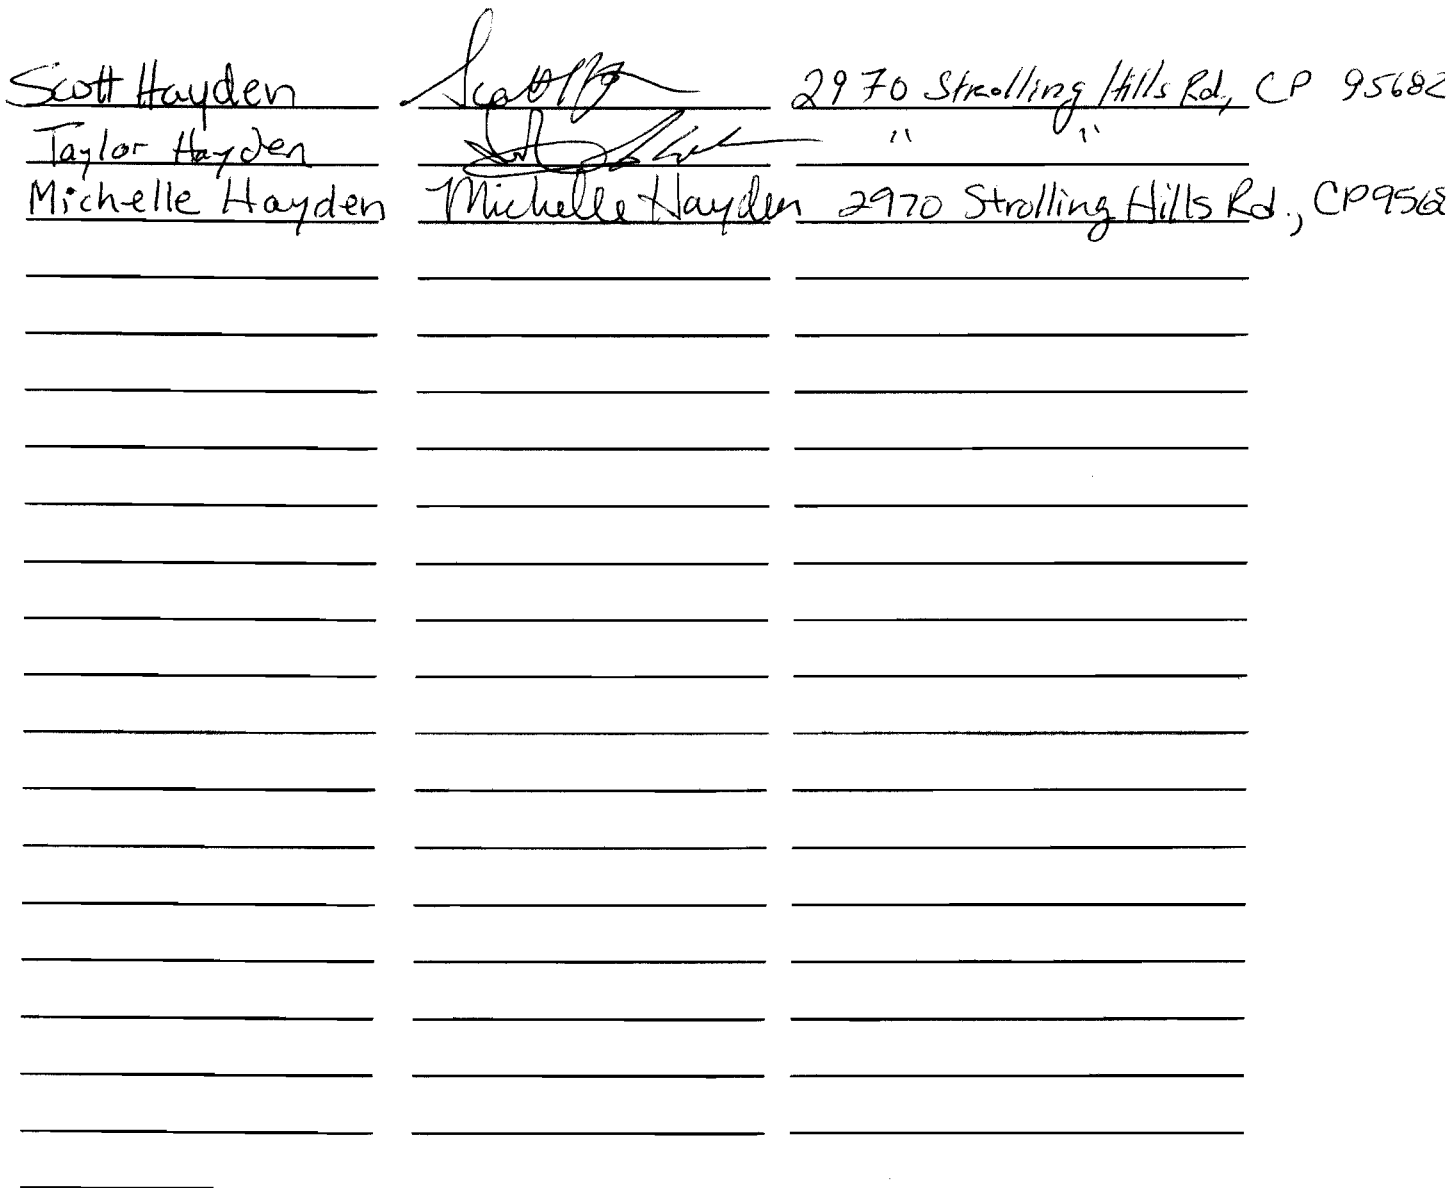 Scott Hayden Scott H 2970 Strolling Hills Rd, CP 95682
Taylor Hayden " "
Michelle Hayden Michelle Hayden 2970 Strolling Hills Rd., CP 9568